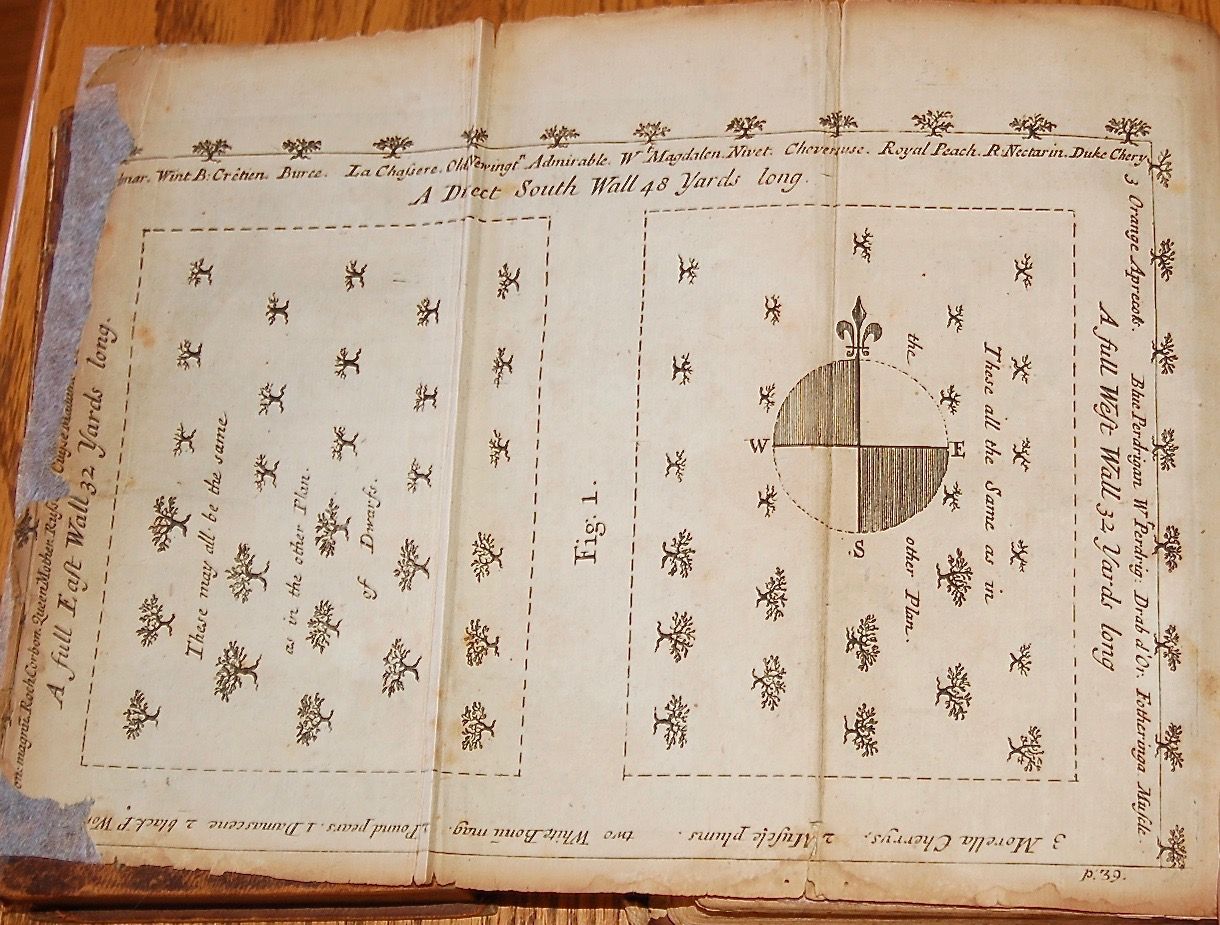 Wint B: Crêtien. Buree. La Chaſsere. Old Newingtn. Admirable. Wt. Magdalen. Nivet. Cheveruse. Royal Peach. R. Nectarin. Duke Chery
A Direct South Wall 48 Yards long.
3 Orange Aprecok. Blue Perdrigan. Wt. Perdrig: Drab d'Or. Fotheringa Muſcle.
A full Weſt Wall 32 Yards long
A full Eaſt Wall 32 Yards long.
magnū. Roch Corbon. Queen Mother. Ruſs
These may all be the same
as in the other Plan.
of Dwarfs.
Fig: 1.
These all the Same as in
the other Plan.
W
E
S
3 Morella Cherrys. 2 Muſcle plums. two White Bonū mag. Pound pears. 1 Damascene 2 black P. Wor
62.d